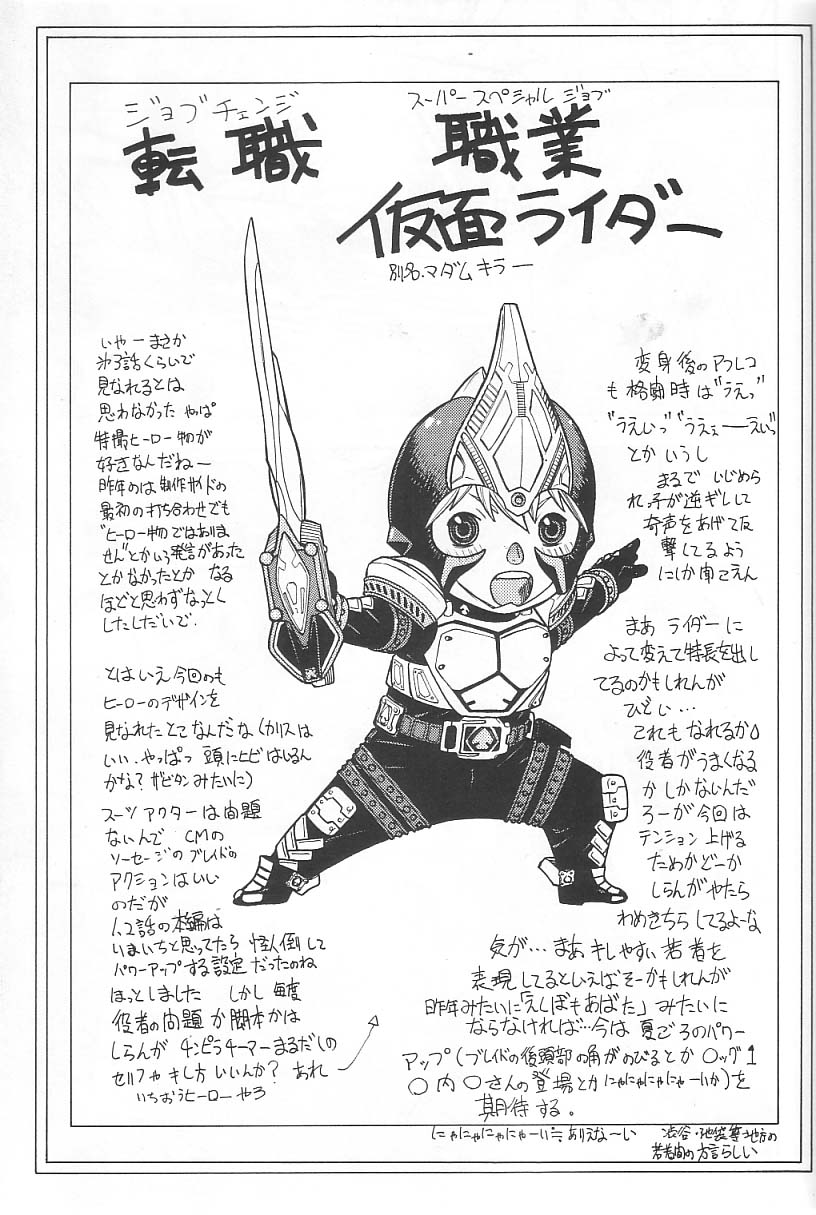 ジョブチェンジ
転職
スーパースペシャルジョブ
職業
仮面ライダー
別名・マダムキラー
いやーまさか
第3話くらいで
見なれるとは
思わなかった やっぱ
特撮ヒーロー物が
好きなんだねー
昨年のは制作サイドの
最初の打ち合わせでも
"ヒーロー物ではありま
せん"とかいう発言があった
とかなかったとか なる
ほどと思わずなっとく
したしだいで.
とはいえ今回のも
ヒーローのデザインを
見なれたとてなんだな(カリスは
いい.やっぱっ 頭にヒビはいるん
かな?ザビタンみたいに)
スーツアクターは問題
ないんで CMの
ソーセージのブレイドの
アクションはいい
のだが
1、2話の本編は
いまいちと思ってたら 怪人倒して
パワーアップする設定だったのね
ほっとしました しかし毎度
役者の問題か脚本かは
しらんが チンピラチーマーまるだしの
セリフやキレ方 いいんか? あれ
いちおうヒーローやろ
変身後のアフレコ
も格闘時は"うえっ"
"うえいっ""うえぇーえいっ"
とかいうし
まるで いじめら
れっ子が逆ギレして
奇声をあげて反
撃してるよう
にしか聞こえん
まあ ライダーに
よって変えて特長を出し
てるのかもしれんが
ひどい…
これもなれるか
役者がうまくなる
かしかないんだ
ろーが今回は
テンション上げる
ためかどーか
しらんがやたら
わめきちらしてるよーな
気が…まあキレやすい若者を
表現してるといえばそーかもしれんが
昨年みたいに「えくぼもあばた」みたいに
ならなければ…今は 夏ごろのパワー
アップ(ブレイドの後頭部の角がのびるとか 〇ッグ1
〇内〇さんの登場とか にゃにゃにゃにゃーいか)を
期待する。
にゃにゃにゃにゃーい≒ありえな〜い
渋谷・池袋等地方の
若者間の方言らしい